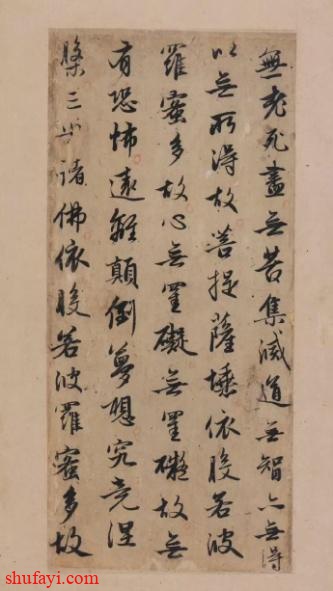 無老死盡無苦集滅道無智亦無得
以無所得故菩提薩埵依般若波
羅蜜多故心無罣礙無罣礙故無
有恐怖遠離顛倒夢想究竟涅
槃三世諸佛依般若波羅蜜多故
shufayi.com